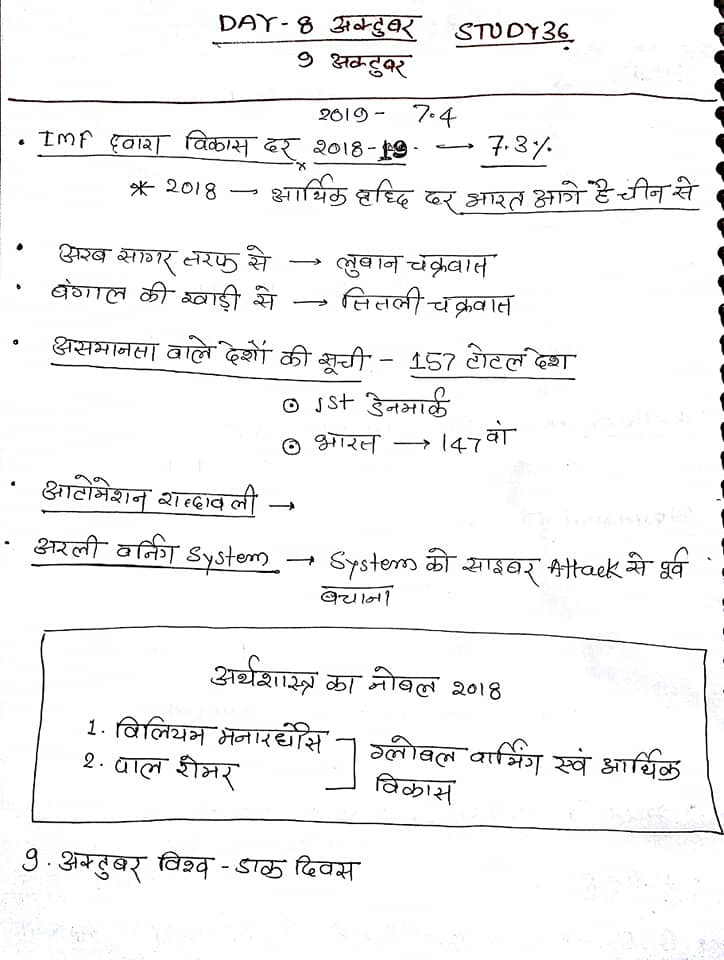 DAY - 8 अक्टुबर STUDY36
9 अक्टुबर
2019 - 7.4
• IMF द्वारा विकास दर 2018-19. → 7.3%
* 2018 → आर्थिक वृध्दि दर भारत आगे है चीन से
• अरब सागर तरफ से → लुबान चक्रवात
• बंगाल की खाड़ी से → तितली चक्रवात
• असमानता वाले देशों की सूची - 157 टोटल देश
⊙ 1st डेनमार्क
⊙ भारत → 147 वां
• आटोमेशन शब्दावली →
• अरली वर्निंग System → System को साइबर Attack से पूर्व
बचाना
अर्थशास्त्र का नोबल 2018
1. विलियम
2. पाल रोमर
ग्लोबल वार्मिंग एवं आर्थिक
विकास
9. अक्टुबर विश्व - डाक दिवस